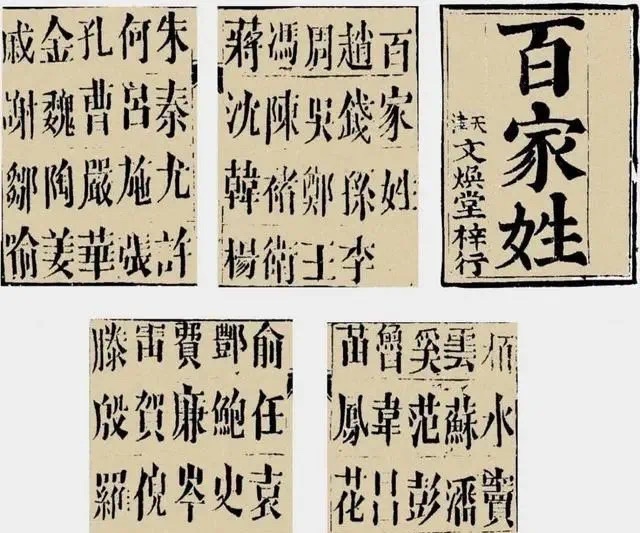 百家姓
天津
文煥堂梓行
百家姓
趙錢孫李
周吳鄭王
馮陳褚衛
蔣沈韓楊
朱秦尤許
何呂施張
孔曹嚴華
金魏陶姜
戚謝鄒喻
柏水竇
雲蘇潘
奚范彭
魯韋昌
苗鳳花
俞任袁
酆鮑史
費廉岑
雷賀倪
滕殷羅